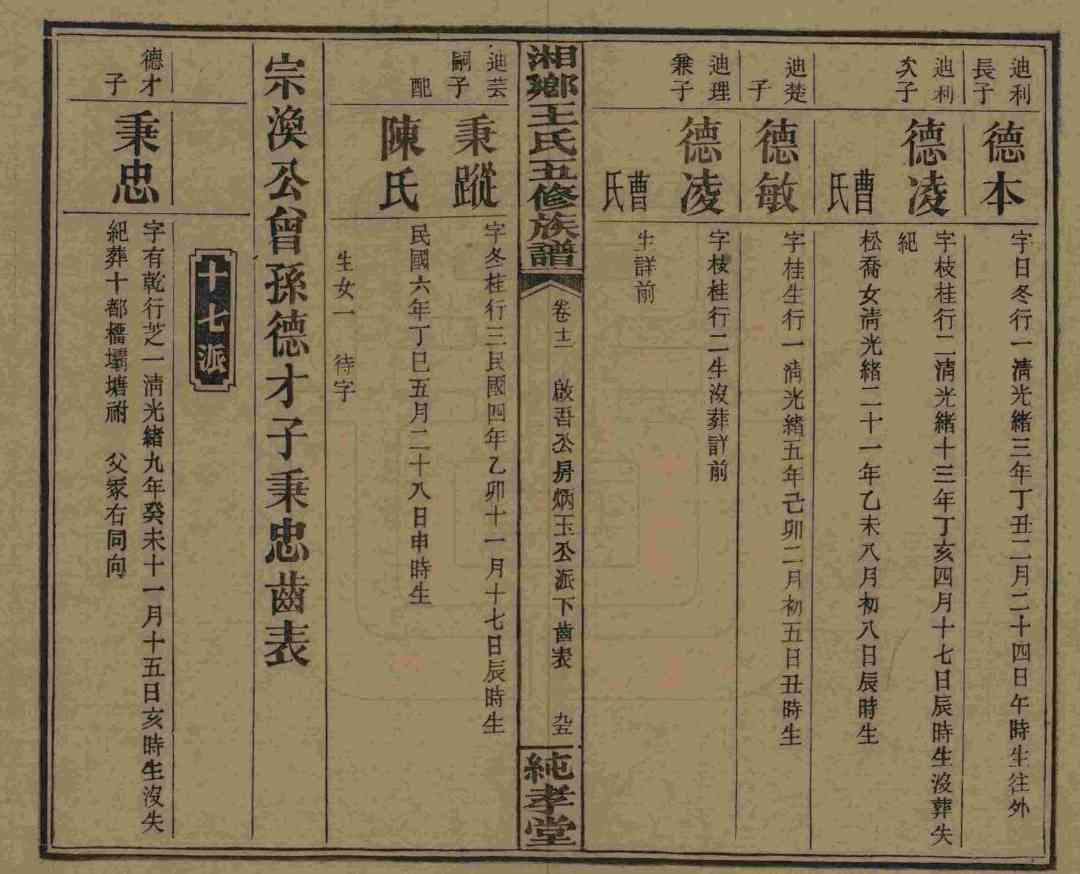 迪利長子
德本
字日冬行一淸光緒三年丁丑二月二十四日午時生往外
迪利次子
德凌
字枝桂行二淸光緒十三年丁亥四月十七日辰時生沒葬失
紀
曹氏
松喬女淸光緒二十一年乙未八月初八日辰時生
迪楚子
德敏
字桂生行一淸光緒五年己卯二月初五日丑時生
迪理兼子
德凌
字枝桂行二生沒葬詳前
曹氏
生詳前
湘鄉王氏五修族譜
卷十二
啟吾公房炳玉公派下齒表
九五
純孝堂
迪芸嗣子
秉蹤
字冬桂行三民國四年乙卯十一月十七日辰時生
配
陳氏
民國六年丁巳五月二十八日申時生
生女一 待字
宗渙公曾孫德才子秉忠齒表
十七派
德才子
秉忠
字有乾行芝一淸光緒九年癸未十一月十五日亥時生沒失
紀葬十都檑壩塘祔 父冢右同向